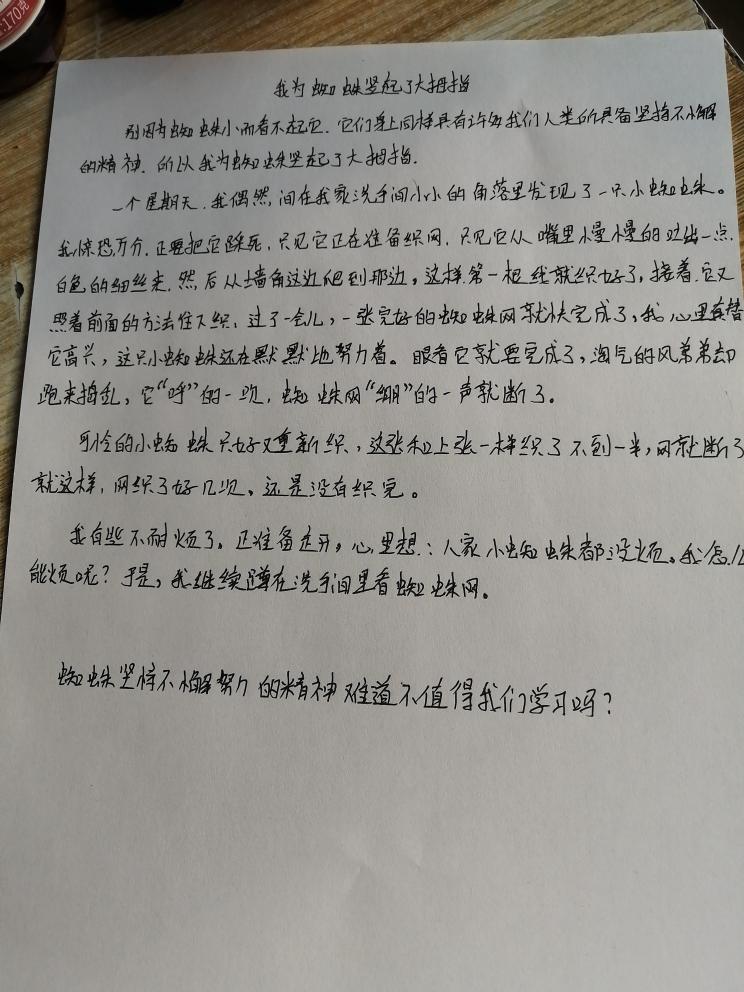 170克
我为蜘蛛竖起了大拇指
别因为蜘蛛小而看不起它.它们身上同样具有许多我们人类所具备坚持不懈
的精神.所以我为蜘蛛竖起了大拇指.
一个星期天.我偶然间在我家洗手间小小的角落里发现了一只小蜘蛛。
我惊恐万分.正要把它踩死,只见它正在准备织网.只见它从嘴里慢慢的吐出一点
白色的细丝来.然后从墙角这边爬到那边。这样.第一根线就织好了,接着.它又
照着前面的方法往下织.过了一会儿,一张完好的蜘蛛网就快完成了,我心里真替
它高兴,这只小蜘蛛还在默默地努力着。眼看它就要完成了,淘气的风弟弟却
跑来捣乱,它“呼”的一吹,蜘蛛网“绷”的一声就断了。
可怜的小蜘蛛只好又重新织,这张和上张一样织了不到一半,网就断了
就这样,网织了好几次,还是没有织完。
我有些不耐烦了。正准备走开,心里想:人家小蜘蛛都没烦。我怎么
能烦呢?于是,我继续蹲在洗手间里看蜘蛛网。
蜘蛛坚持不懈努力的精神难道不值得我们学习吗?